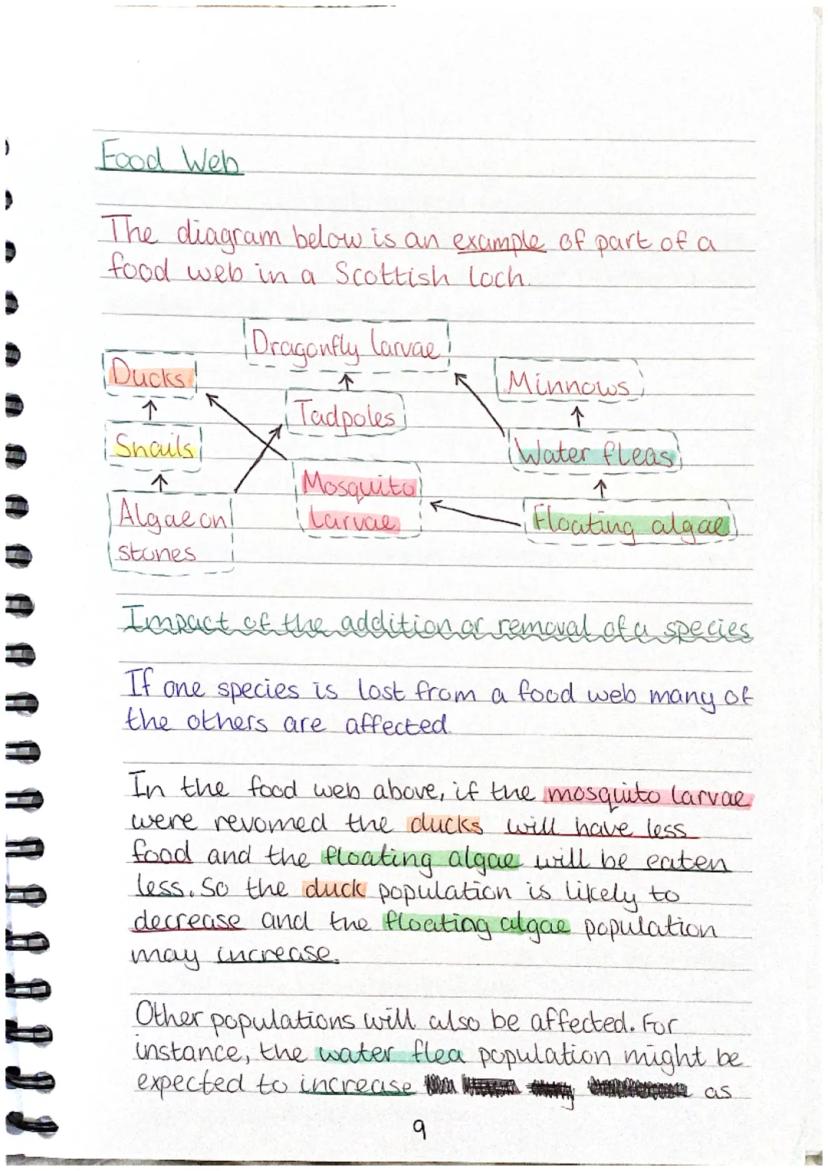 Food Web
The diagram below is an example of part of a
food web in a Scottish Loch.
Dragonfly larvae
Ducks
Minnows
Tadpoles
Snails
Water fleas
Mosquito
larvae
Algae on
stones
Floating algae
Impact of the addition or removal of a species
If one species is lost from a food web many of
the others are affected
In the food web above, if the mosquito larvae
were revomed the ducks will have less
food and the floating algae will be eaten
less. So the duck population is likely to
decrease and the floating algae population
may increase.
Other populations will also be affected. For
instance, the water flea population might be
expected to increase as
9